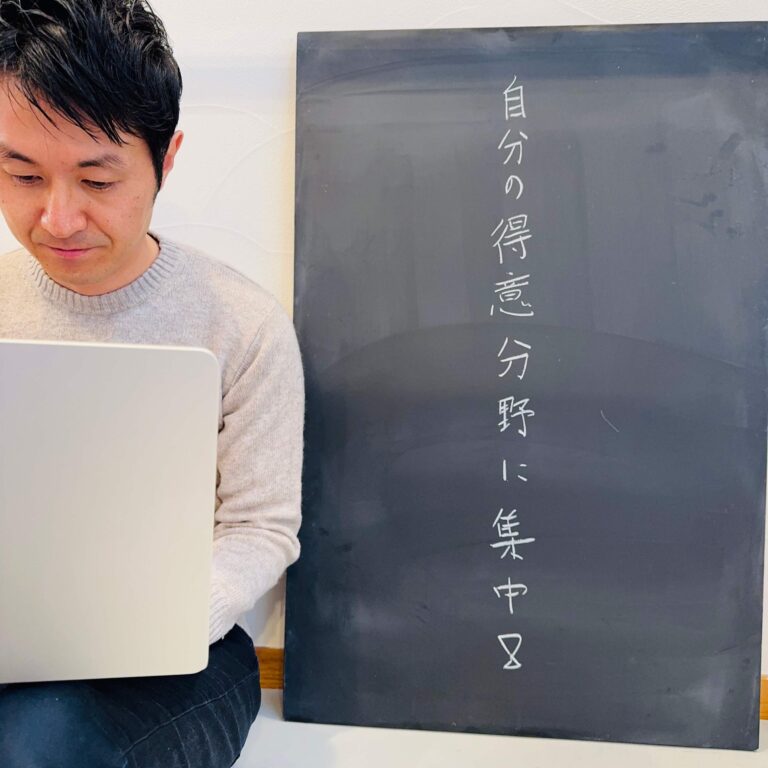 自分の得意分野に集中